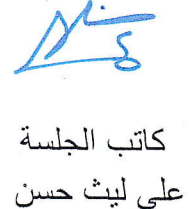 كاتب الجلسة
على ليث حسن